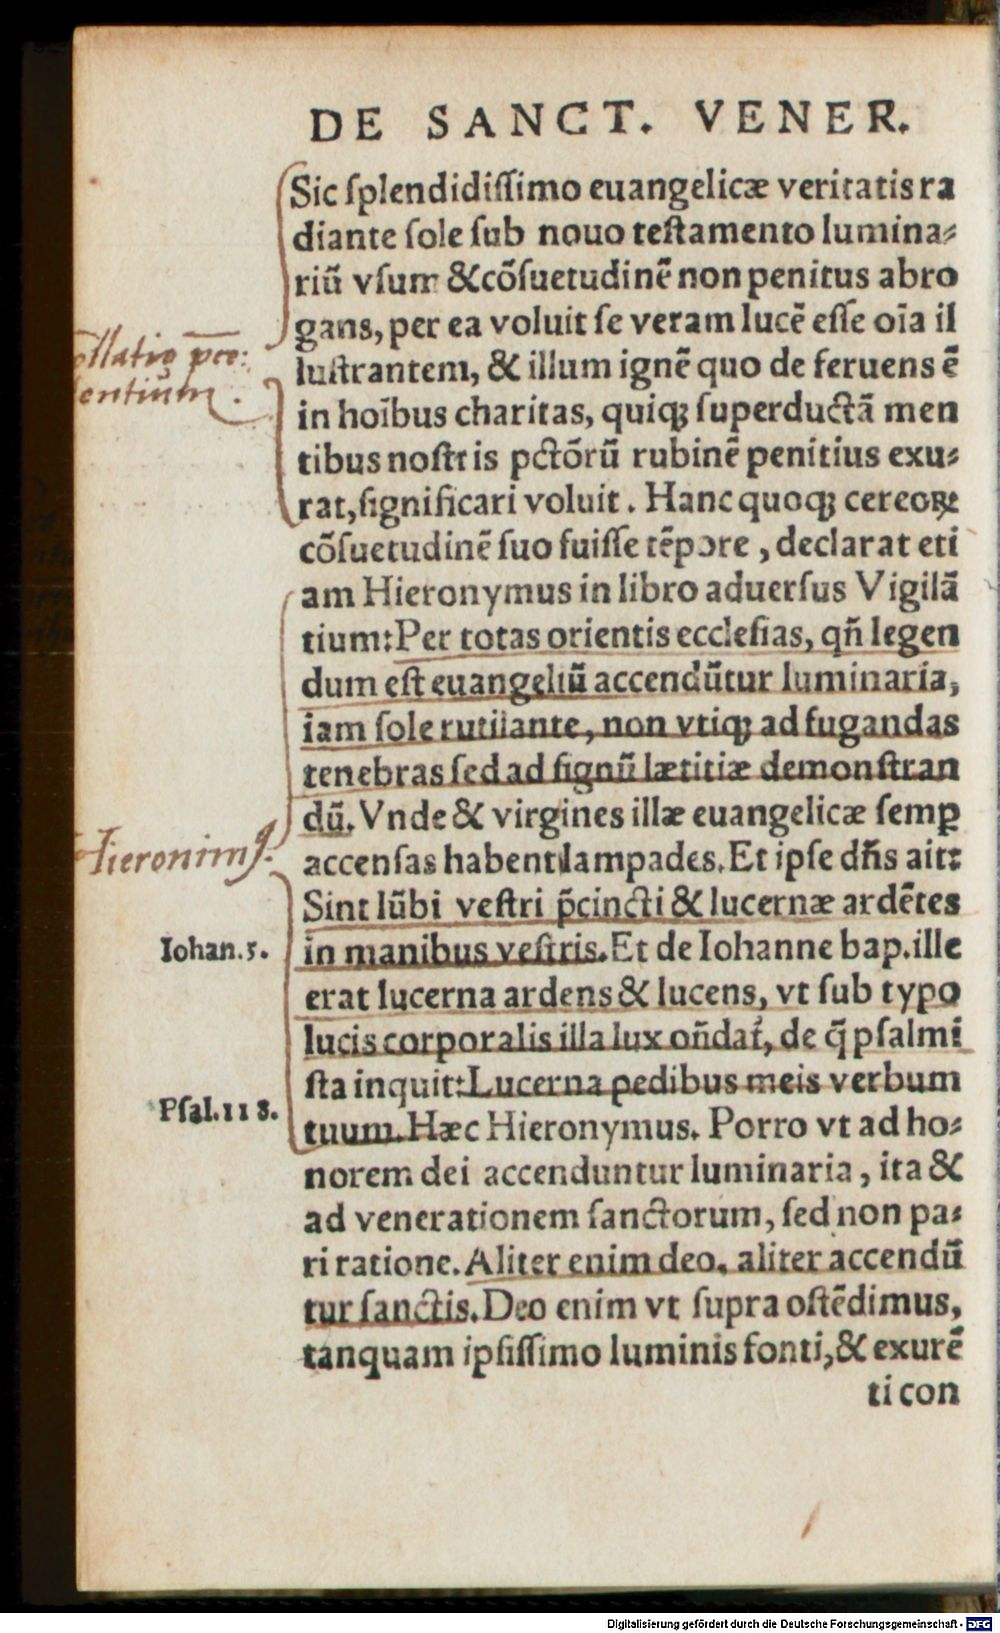 DE SANCT. VENER.
Sic ſplendidiſſimo euangelicæ veritatis ra
diante ſole ſub nouo teſtamento lumina⸗
riū vſum &cōſuetudinē non penitus abro
gans, per ea voluit ſe veram lucē eſſe oīa il
luſtrantem, & illum ignē quo de feruens ē
in hoībus charitas, quiqꝫ ſuperductā men
tibus noſtris pctōrū rubinē penitius exu⸗
rat, ſignificari voluit. Hanc quoqꝫ cereoꝝ
cōſuetudinē ſuo fuiſſe tēpore, declarat eti
am Hieronymus in libro aduerſus Vigilā
tium: Per totas orientis eccleſias, qñ legen
dum eſt euangeliū accendūtur luminaria,
iam ſole rutilante, non vtiqꝫ ad fugandas
tenebras ſed ad ſignū lætitiæ demonſtran
dū. Vnde & virgines illæ euangelicæ ſemꝑ
accenſas habent lampades. Et ipſe dñs ait:
Sint lūbi veſtri p̄cincti & lucernæ ardētes
in manibus veſtris. Et de Iohanne bap. ille
erat lucerna ardens & lucens, vt ſub typo
lucis corporalis illa lux oñdat̃, de q̄ pſalmi
ſta inquit: Lucerna pedibus meis verbum
tuum. Hæc Hieronymus. Porro vt ad ho⸗
norem dei accenduntur luminaria, ita &
ad venerationem ſanctorum, ſed non pa⸗
ri ratione. Aliter enim deo, aliter accendū
tur ſanctis. Deo enim vt ſupra oſtēdimus,
tanquam ipſiſſimo luminis fonti, & exurē
ti con
ollatio
Hieronimꝰ.
Iohan.5.
Pſal.118.
Digitalisierung gefördert durch die Deutsche Forschungsgemeinschaft - DFG